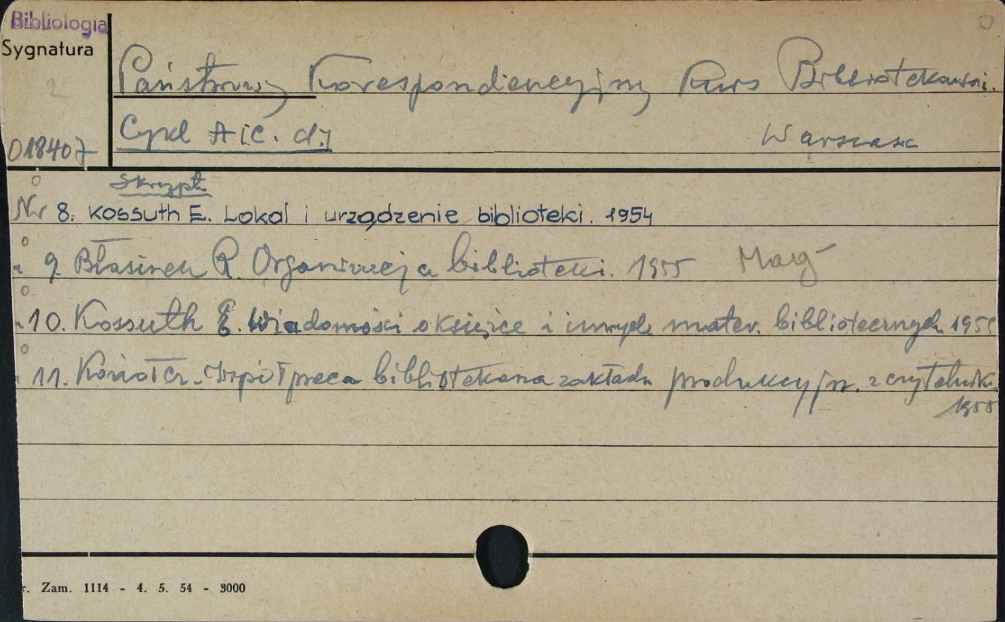 Bibliologia
Sygnatura
Państwowy Korespondencyjny Kurs Bibliotekarski.
Cykl A i C. d.)
Warszawa
018407
Skrypt
Nr 8. Kossuth E. Lokal i urządzenie biblioteki. 1954
" 9. R. Organizacja biblioteki. 1955 Mag
" 10. Kossuth E. Wiadomości o książce i innych mater. bibliotecznych 195
" 11. Kozioł Cz. Współpraca bibliotekarza zakładu produkcyjn. z czytelnik.
1955
r. Zam. 1114 - 4. 5. 54 - 3000